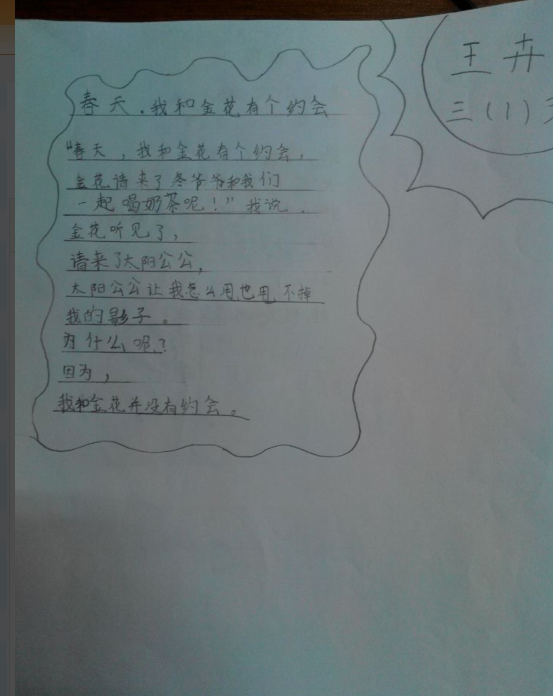 春天,我和金花有个约会
"春天,我和金花有个约会,
金花请来了冬爷爷和我们
一起喝奶茶呢!"我说。
金花听见了,
请来了太阳公公,
太阳公公让我怎么甩也甩不掉
我的影子。
为什么呢?
因为,
我和金花并没有约会。
王卉
三(1)